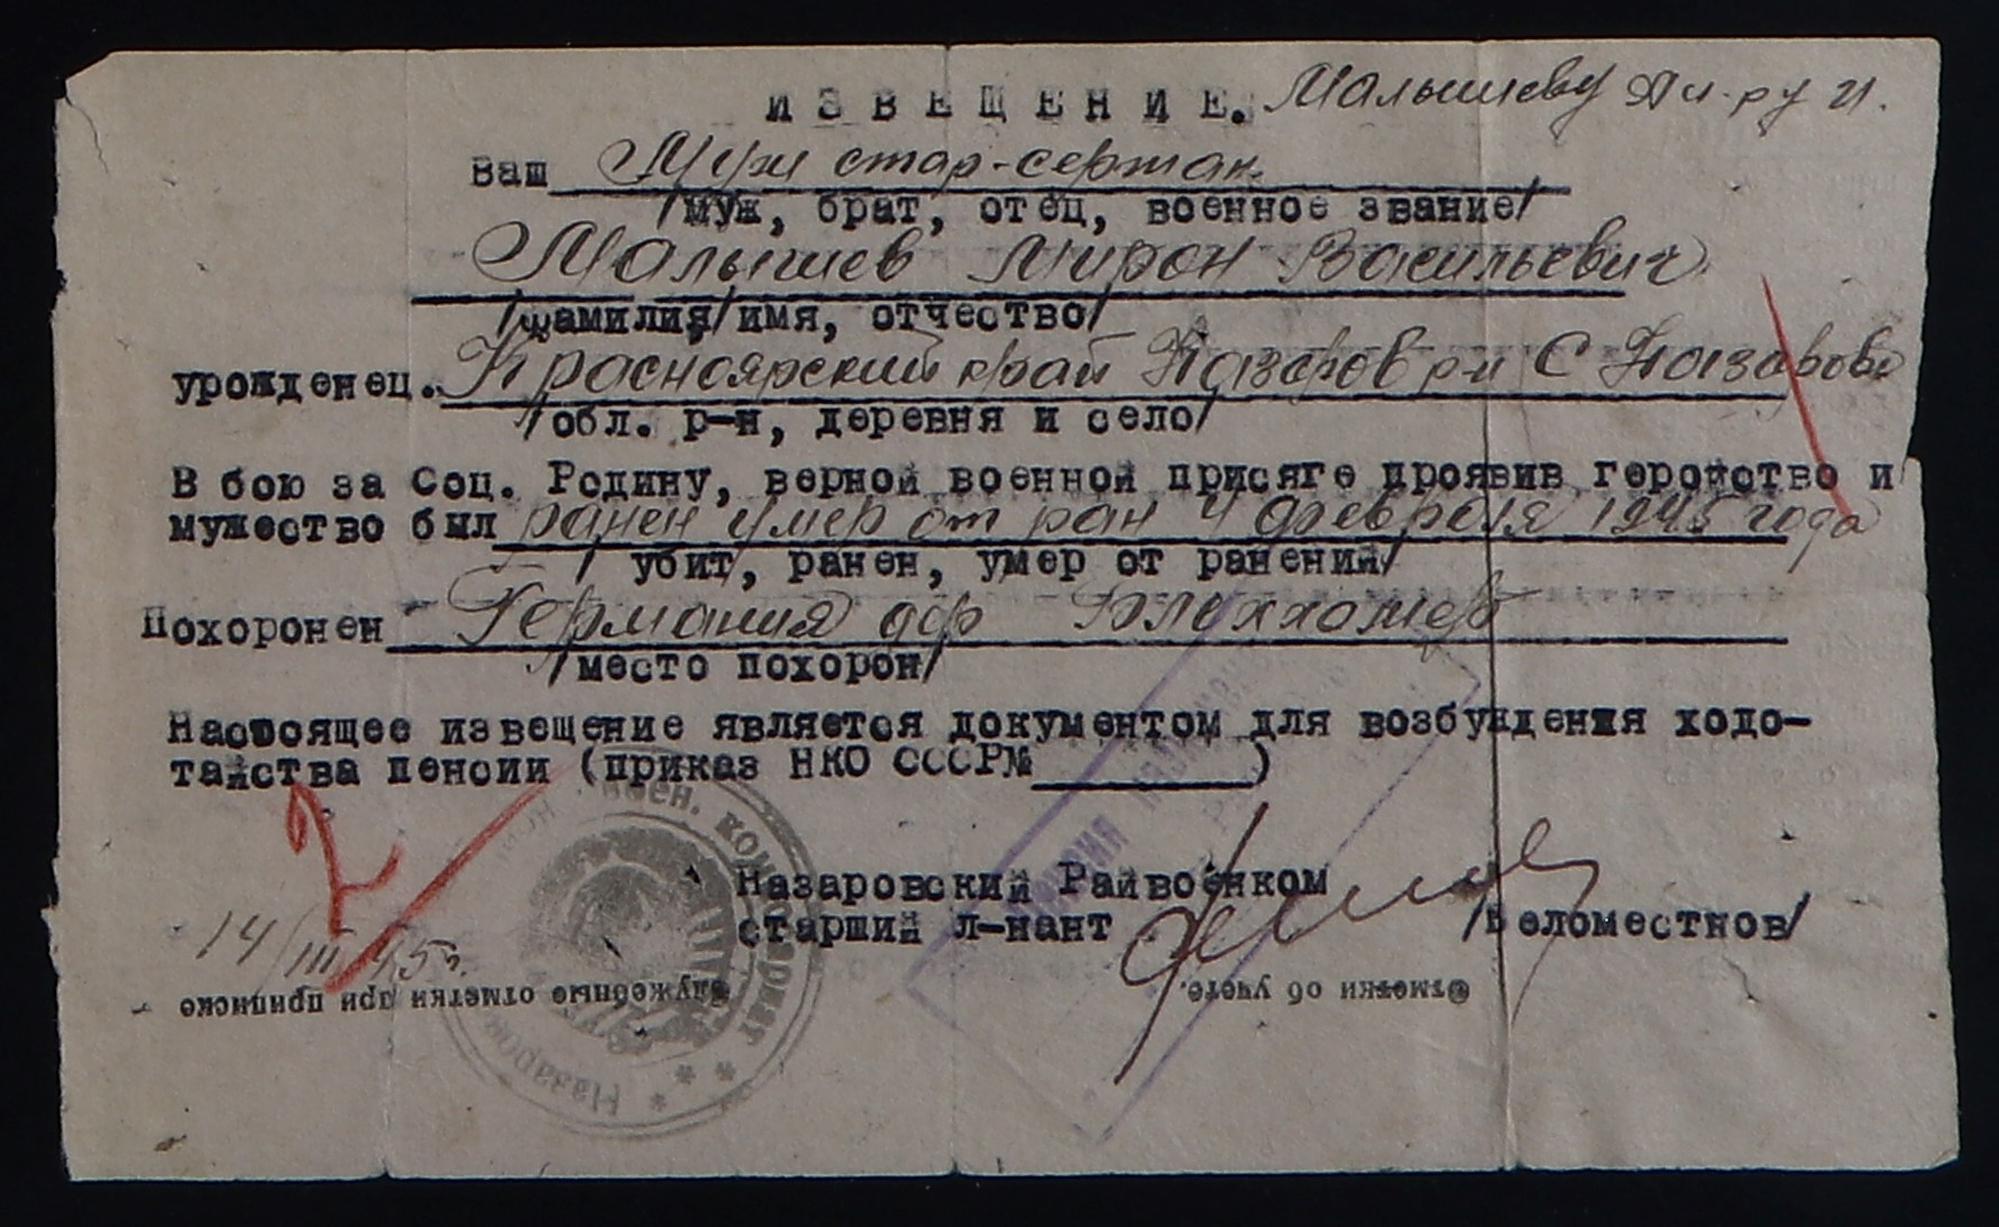 ИЗВЕЩЕНИЕ. Малышеву Ал-ру И.
Ваш Муж стар-сержан.
/муж, брат, отец, военное звание/
Малышев Мирон Васильевич
/фамилия/имя, отчество/
урожденец. Красноярский край Назаров р-н С Назарово
/обл. р-н, деревня и село/
В бою за Соц. Родину, верной военной присяге проявив геройство и
мужество был ранен умер от ран 4 февраля 1945 года
/ убит, ранен, умер от ранений/
Похоронен Германия дер
/место похорон/
Настоящее извещение является документом для возбуждения ходо-
тайства пенсии (приказ НКО СССР№ )
Назаровский Райвоенком
старший л-нант /Беломестнов/
14/III 45г.
Служебные отметки при приписке
Отметки об учете.
Воен. комиссариат